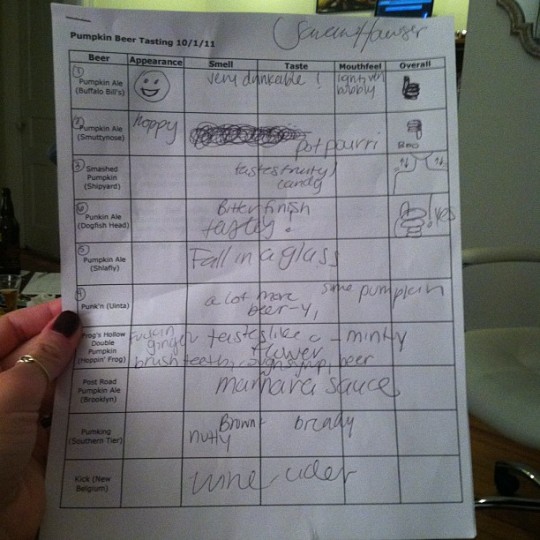 Pumpkin Beer Tasting 10/1/11
Beer Appearance Smell Taste Mouthfeel Overall
1
Pumpkin Ale
(Buffalo Bill's)
very drinkable!
bubbly
2
Pumpkin Ale
(Smuttynose)
Hoppy
potpourri
Smashed
Pumpkin
(Shipyard)
tastes fruity/
candy
Punkin Ale
(Dogfish Head)
Bitter finish
tastey.
yes
5
Pumpkin Ale
(Shlafly)
Fall in a glass
Punk'n (Uinta)
a lot more
beer-y,
some pumpkin
Frog's Hollow
Double
Pumpkin
(Hoppin' Frog)
Fuckin
ginger
tastes like a
flower
- minty
brush teeth, cough syrup, beer
Post Road
Pumpkin Ale
(Brooklyn)
sauce
Pumking
(Southern Tier)
Brown
nutty
bready
Kick (New
Belgium)
wine, cider